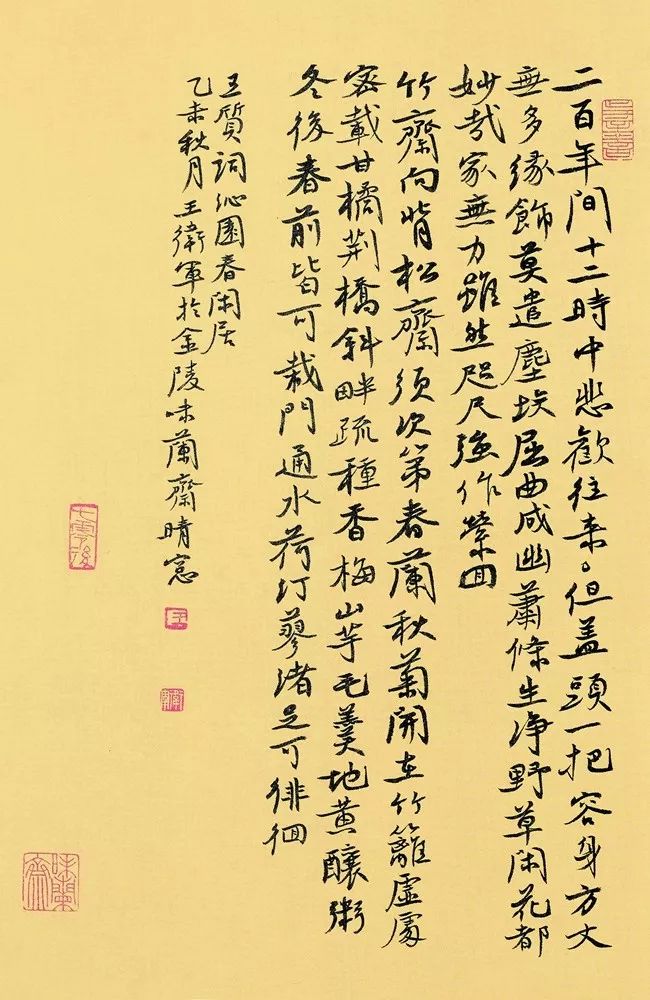 二百年間十二時中悲歡往来但盖頭一把容身方丈
無多緣飾莫遣塵埃屈曲成幽蕭條生净野草閑花都
妙哉家無力雖然咫尺強作縈回
竹齋向背松齋須次第春蘭秋菊開在竹籬虛處
密載甘橘荆橋斜畔疏種香梅山芋毛羹地黄釀粥
冬後春前皆可栽門通水荷汀蓼渚足可徘徊
王質詞沁園春閑居
乙未秋月王衛軍於金陵味蘭齋晴窓
七零後
王
味蘭齋